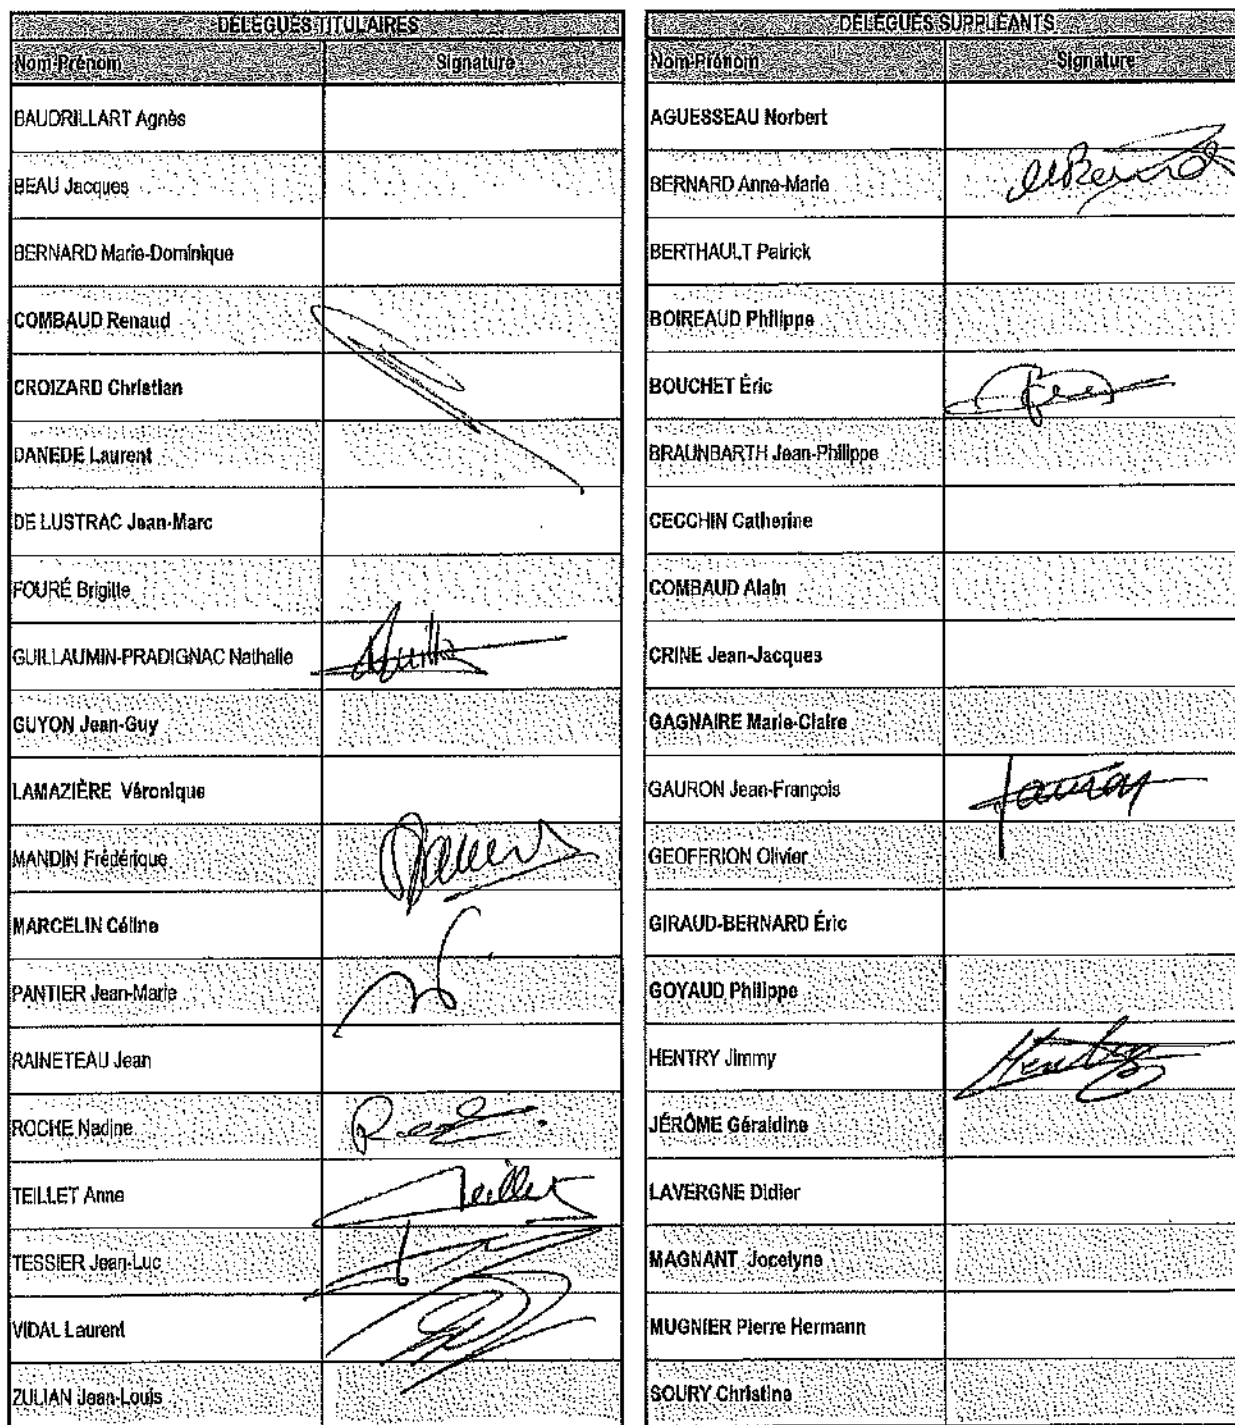 DÉLÉGUÉS TITULAIRES
Nom-Prénom Signature
BAUDRILLART Agnès
BEAU Jacques
BERNARD Marie-Dominique
COMBAUD Renaud
CROIZARD Christian
DANEDE Laurent
DE LUSTRAC Jean-Marc
FOURÉ Brigitte
GUILLAUMIN-PRADIGNAC Nathalie
GUYON Jean-Guy
LAMAZIÈRE Véronique
MANDIN Frédérique
MARCELIN Céline
PANTIER Jean-Marie
RAINETEAU Jean
ROCHE Nadine
TEILLET Anne Teillet
TESSIER Jean-Luc
VIDAL Laurent
ZULIAN Jean-Louis
DÉLÉGUÉS SUPPLÉANTS
Nom-Prénom Signature
AGUESSEAU Norbert
BERNARD Anne-Marie
BERTHAULT Patrick
BOIREAUD Philippe
BOUCHET Éric
BRAUNBARTH Jean-Philippe
CECCHIN Catherine
COMBAUD Alain
CRINE Jean-Jacques
GAGNAIRE Marie-Claire
GAURON Jean-François
GEOFFRION Olivier
GIRAUD-BERNARD Éric
GOYAUD Philippe
HENTRY Jimmy
JÉRÔME Géraldine
LAVERGNE Didier
MAGNANT Jocelyne
MUGNIER Pierre Hermann
SOURY Christine